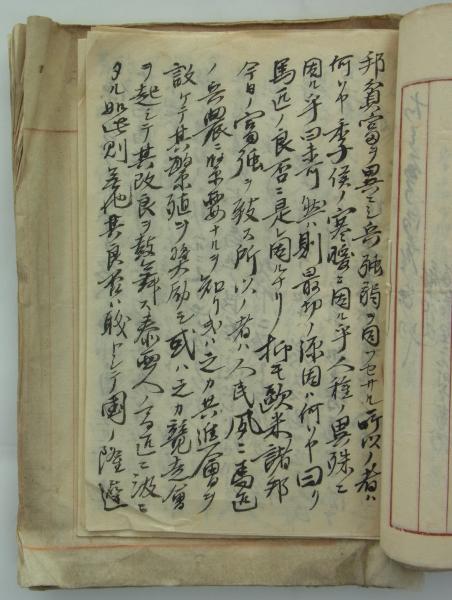 邦貧富ヲ異ニシ兵強弱ヲ同フセサル所以ノ者ハ
何ソヤ季候ノ寒暖ニ因ル乎人種ノ異殊ニ
因ル乎曰未可然ハ則最切ノ源因ハ何ソヤ曰ク
馬匹ノ良否ニ是レ因ルナリ抑モ歐米諸邦
今日ノ富強ヲ致ス所以ノ者ハ人民夙ニ馬匹
ノ兵農ニ緊要ナルヲ知リ或ハ之カ共進會ヲ
設ケテ其繁殖ヲ奨励シ或ハ之カ競走會
ヲ起シテ其改良ヲ鼓舞ス泰西人ノ馬匹ニ汲ニ
タル如此則無他其良否ハ職トシテ國ノ隆